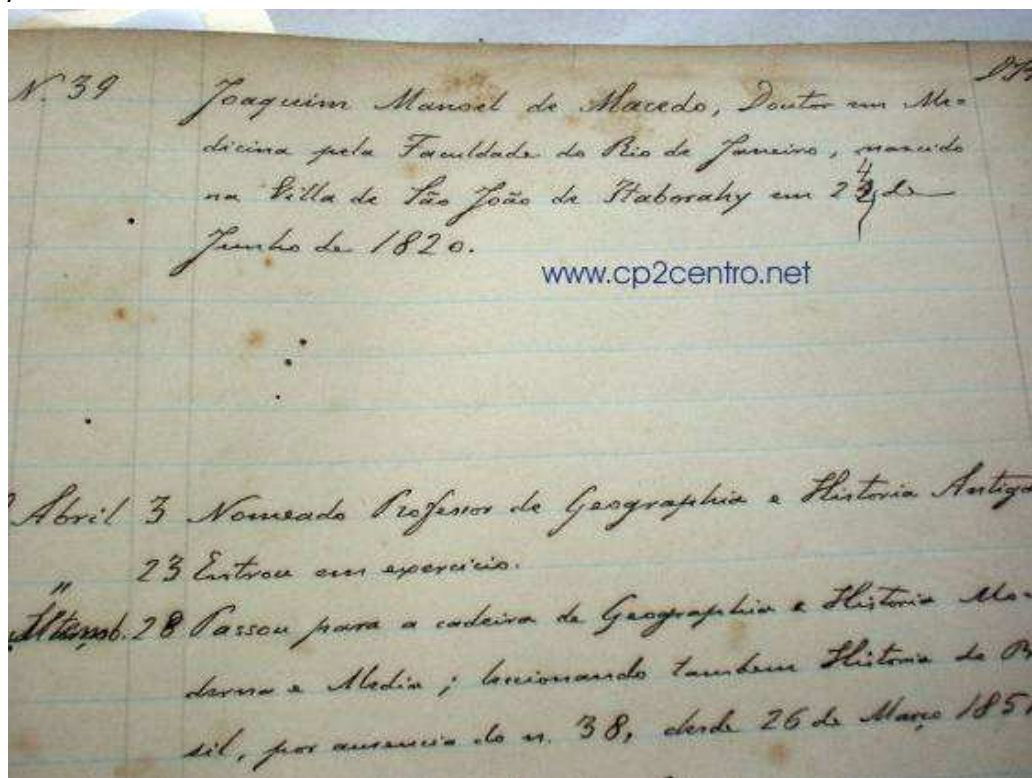 N. 39 Joaquim Manoel de Macedo, Doutor em Me-
dicina pela Faculdade do Rio de Janeiro, nascido
na Villa de São João de Itaborahy em 24 de
Junho de 1820.
www.cp2centro.net
Abril 3 Nomeado Professor de Geographia e Historia Antiga
" 23 Entrou em exercicio.
28 Passou para a cadeira de Geographia e Historia Mo-
derna e Media; leccionando tambem Historia do Bra
sil, por ausencia do n. 38, desde 26 de Março 1851